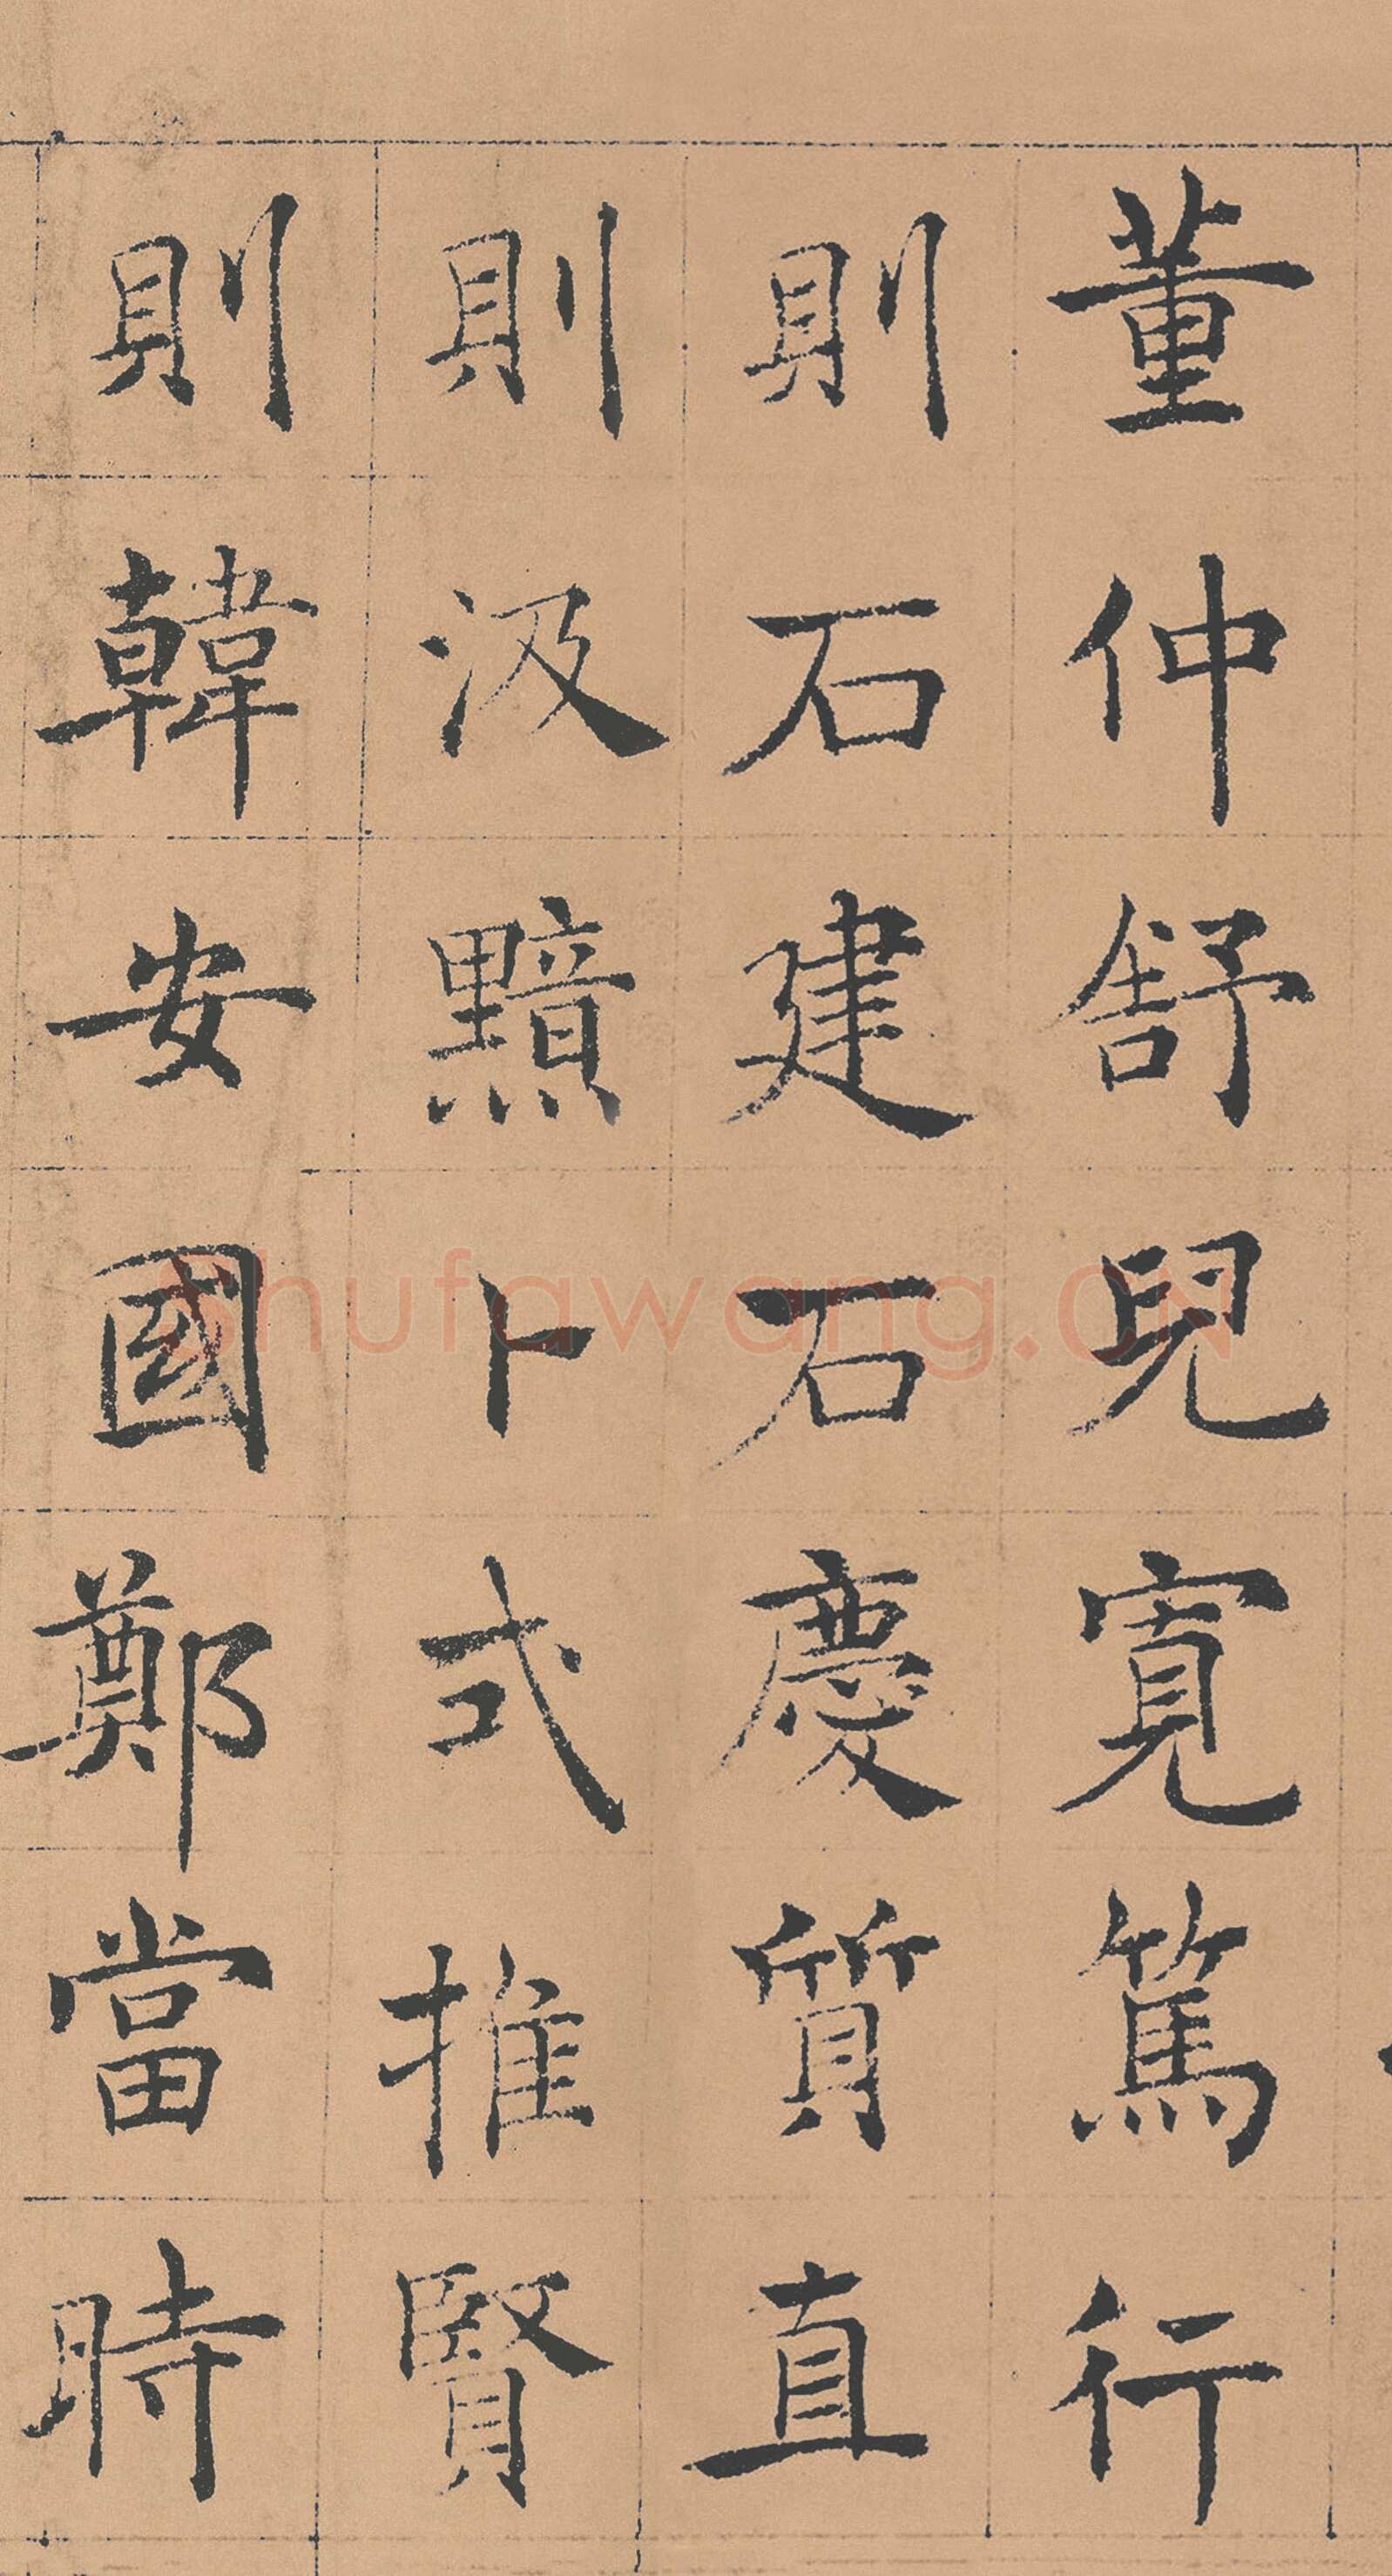 董仲舒兒寬篤行
則石建石慶質直
則汲黯卜式推賢
則韓安國鄭當時
Shufawang.CN